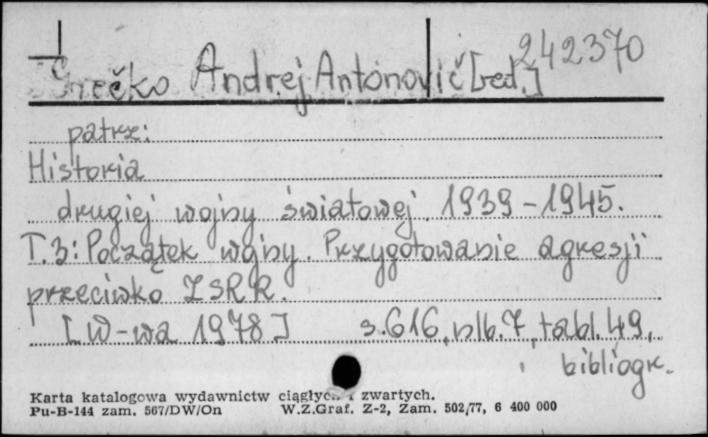 242370
Grečko Andrej Antonovič [red.]
patrz:
Historia
drugiej wojny światowej 1939-1945.
T.3: Początek wojny. Przygotowanie agresji
przeciwko ZSRR.
[W-wa 1978] s.616, nlb.7, tabl.49,
bibliogr.
Karta katalogowa wydawnictw ciągłych i zwartych.
Pu-B-144 zam. 567/DW/On W.Z.Graf. Z-2, Zam. 502/77, 6 400 000